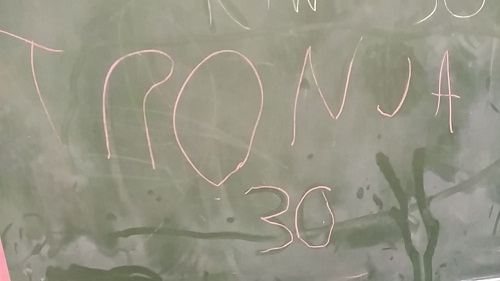 TRONJA
30